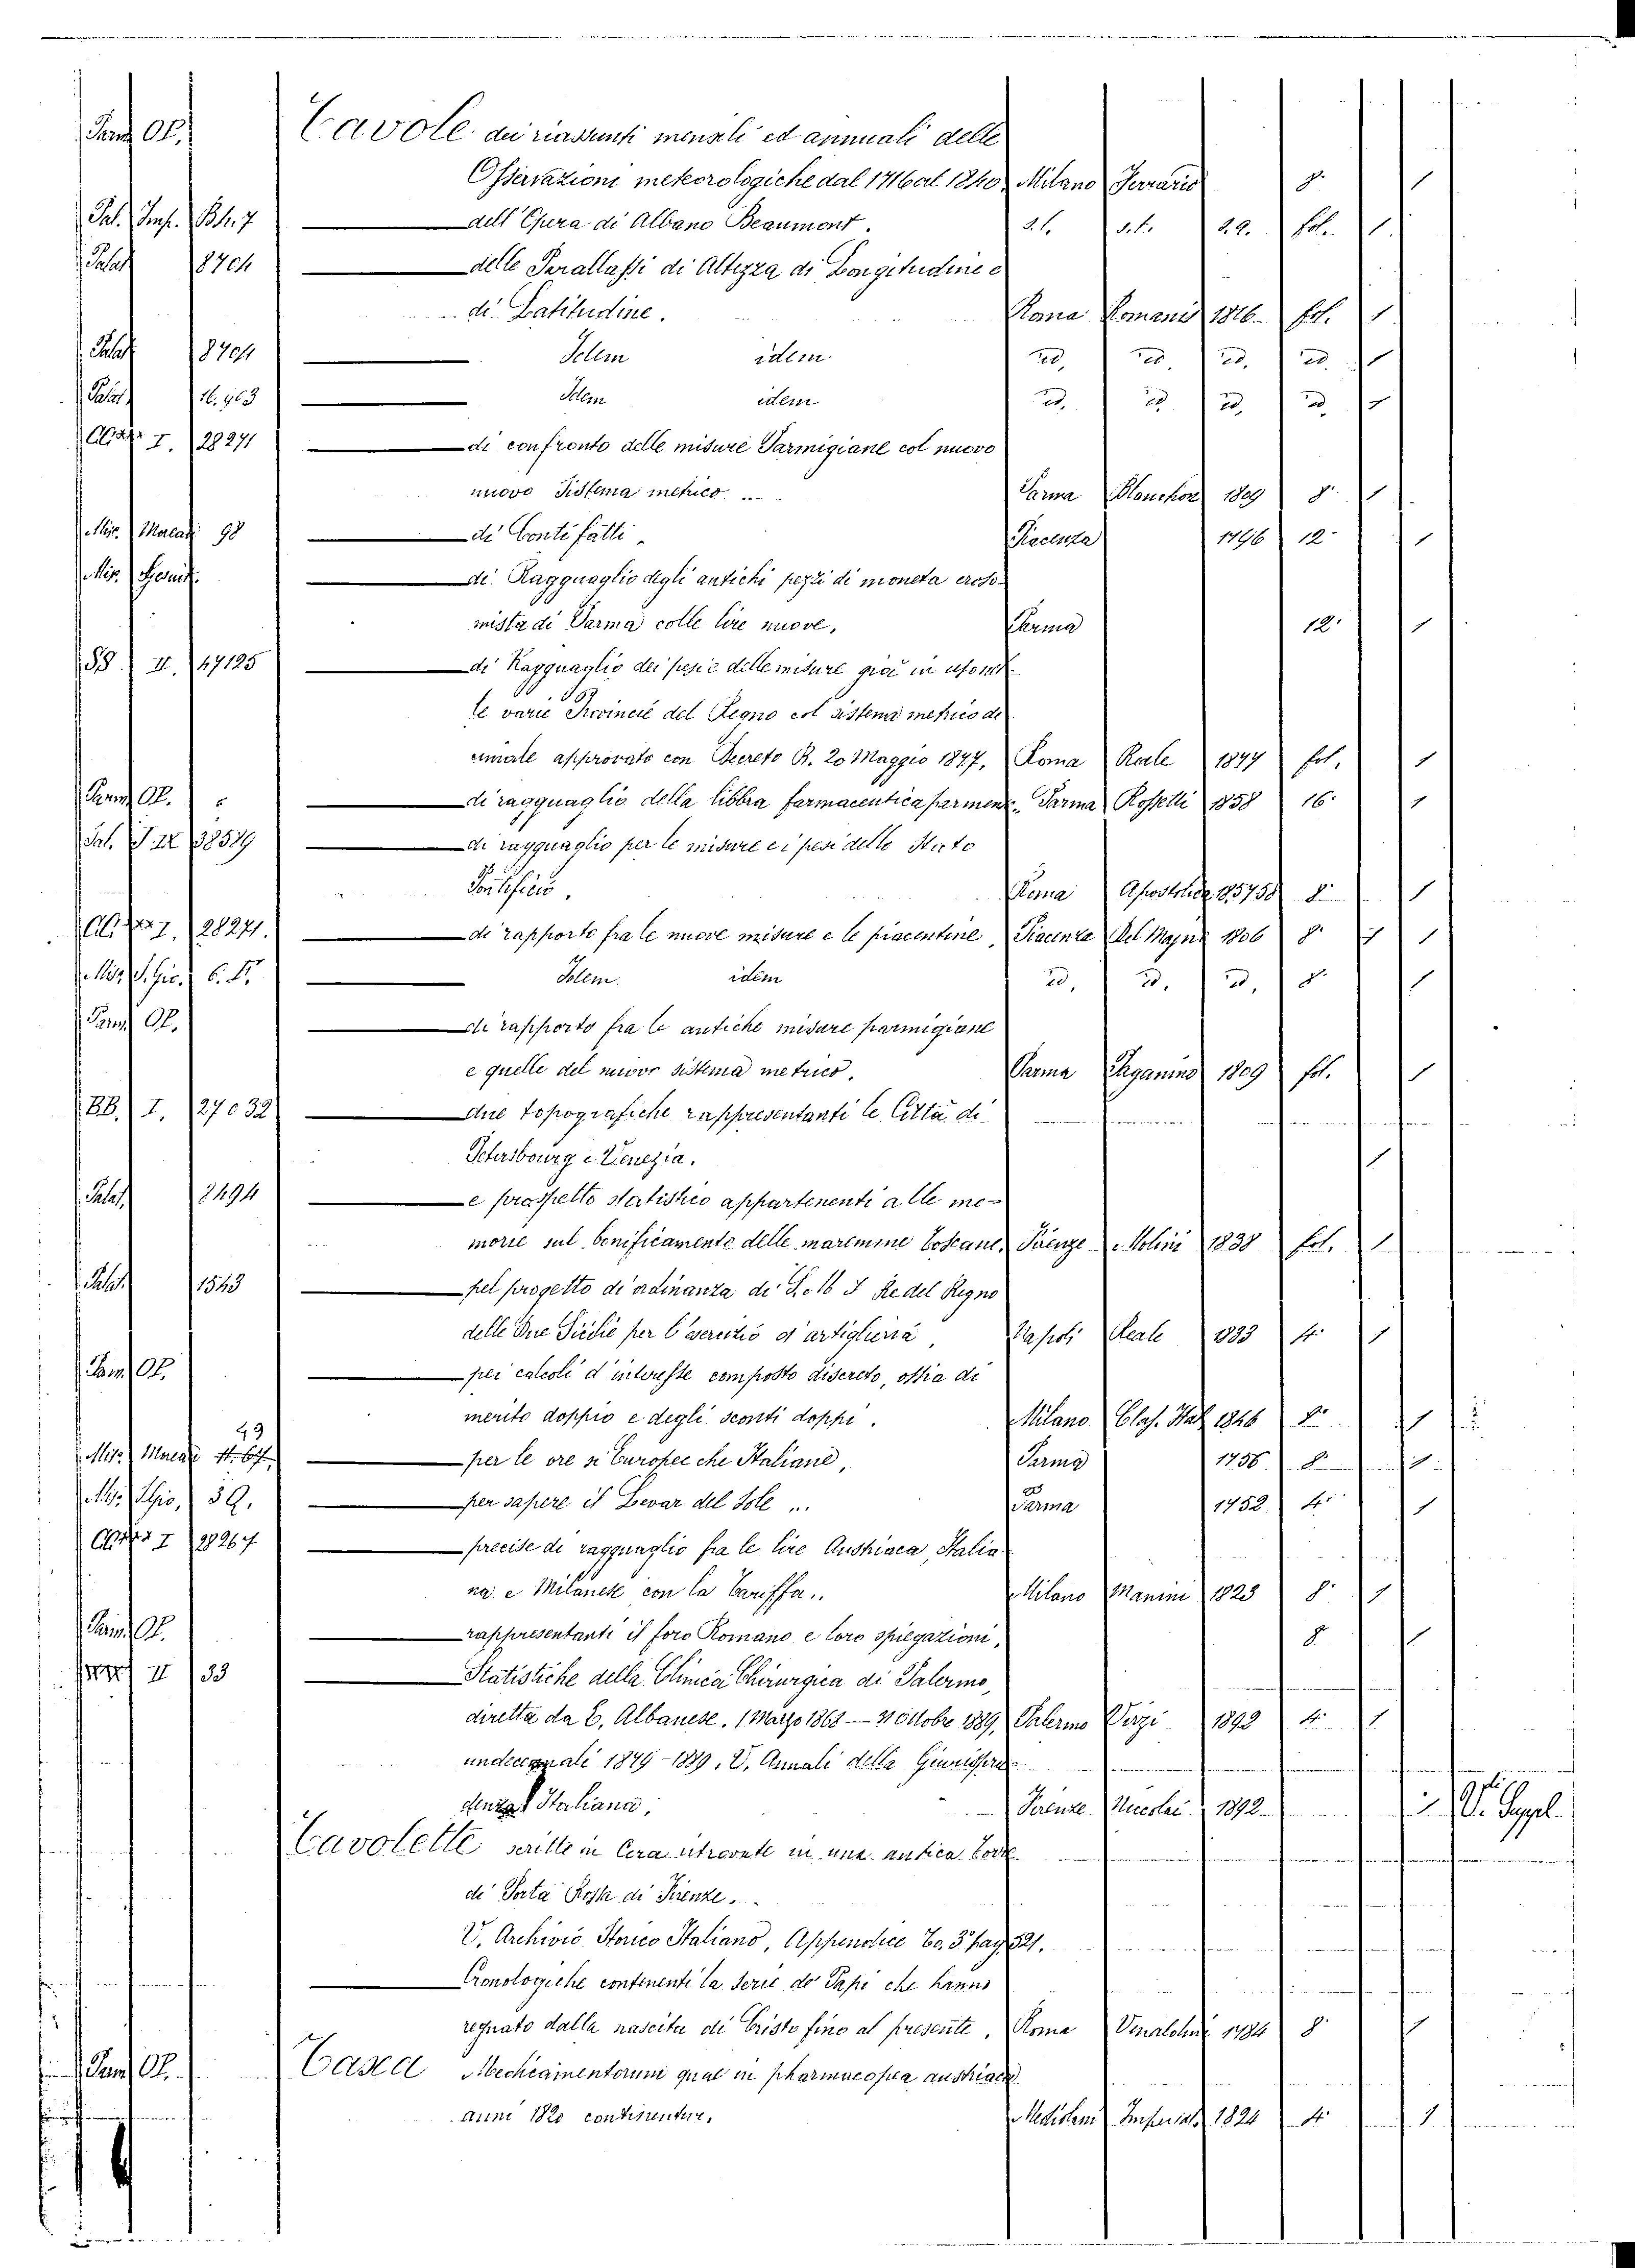 Parm. Op. Tavole dei riassunti mensili ed annuali delle
Osservazioni meteorologiche dal 1716 al 1840 Milano Ferrario 8.° 1
Pal. Imp. Bh. 7 — dell'Opera di Albano Beaumont. s.l. s.t. s.a. fol. 1
Palat. 8704 — delle Parallassi di Altezza di Longitudine e
di Latitudine. Roma Romanis 1816 fol. 1
Palat. 8704 — Idem idem id. id. id. id. 1
Palat. 16.963 — Idem idem id. id. id. id. 1
I. 28271 — di confronto delle misure Parmigiane col nuovo
nuovo Sistema metrico .. Parma Blanchon 1809 8.° 1
Mis. 98 — di Conti fatti. Piacenza 1796 12.° 1
Mis. — di Ragguaglio degli antichi pezzi di moneta eroso-
mista di Parma colle lire nuove. Parma 12.° 1
SS. II. 47125 — di Ragguaglio dei pesi e delle misure già in uso nel-
le varie Provincie del Regno col sistema metrico de
cimale approvato con Decreto R. 20 Maggio 1877, Roma Reale 1877 fol. 1
Parm. Op. — di ragguaglio della libbra farmaceutica parmens. Parma Rossetti 1858 16.° 1
Pal. 38529 — di ragguaglio per le misure ei pesi dello Stato
Pontificio. Roma Apostolica 185758 8.° 1
I. 28271. — di rapporto fra le nuove misure e le piacentine Piacenza Del Majno 1806 8.° 1 1
Mis. 6. — Idem. idem id. id. id. 8.° 1
Parm. Op. — di rapporto fra le antiche misure parmigiane
e quelle del nuovo sistema metrico. Parma Paganino 1809 fol. 1
BB. I. 27032 — due topografiche rappresentanti le Città di
Petersbourg e Venezia. 1
Palat. 2494 — e prospetto statistico appartenenti alle me-
morie sul bonificamento delle maremme toscane. Firenze Molini 1838 fol. 1
Palat. 1543 — pel progetto di ordinanza di S. M. Re del Regno
delle Due Sicilie per l'esercizio d'artiglieria, Napoli Reale 1833 4.° 1
Parm. Op. — pei calcoli d'interesse composto discreto, ossia di
merito doppio e degli sconti doppi. Milano Class. Ital. 1846 8.° 1
49
Mis. — per le ore si Europee che Italiane, Parma 1756 8.° 1
Mis. 39. — per sapere il Levar del Sole ... Parma 1752 4.° 1
I 28267 — precise di ragguaglio fra le lire Austriaca, Italia-
na e Milanese con la tariffa.. Milano Manini 1823 8.° 1
Parm. Op. — rappresentanti il foro Romano e loro spiegazioni. 8.° 1
II 33 — Statistiche della Clinica Chirurgica di Palermo,
diretta da E. Albanese. 1 Marzo 1868 — 31 Ottobre 1889, Palermo Virzi 1892 4.° 1
undecennali 1879-1889. V. Annali della Giurispru-
denza Italiana. Firenze Niccolai 1892 V. Suppl.
Tavolette scritte in Cera ritrovate in una antica torre
di Porta Rossa di Firenze.
V. Archivio Storico Italiano, Appendice To. 3° pag 521.
— Cronologiche continenti la Serie de' Papi che hanno
regnato dalla nascita di Cristo fino al presente. Roma 1784 8.° 1
Parm. Op. Taxa Medicamentorum quae in pharmacopea austriaca
anni 1820 continentur. Mediolani Imperiale 1824 4.° 1